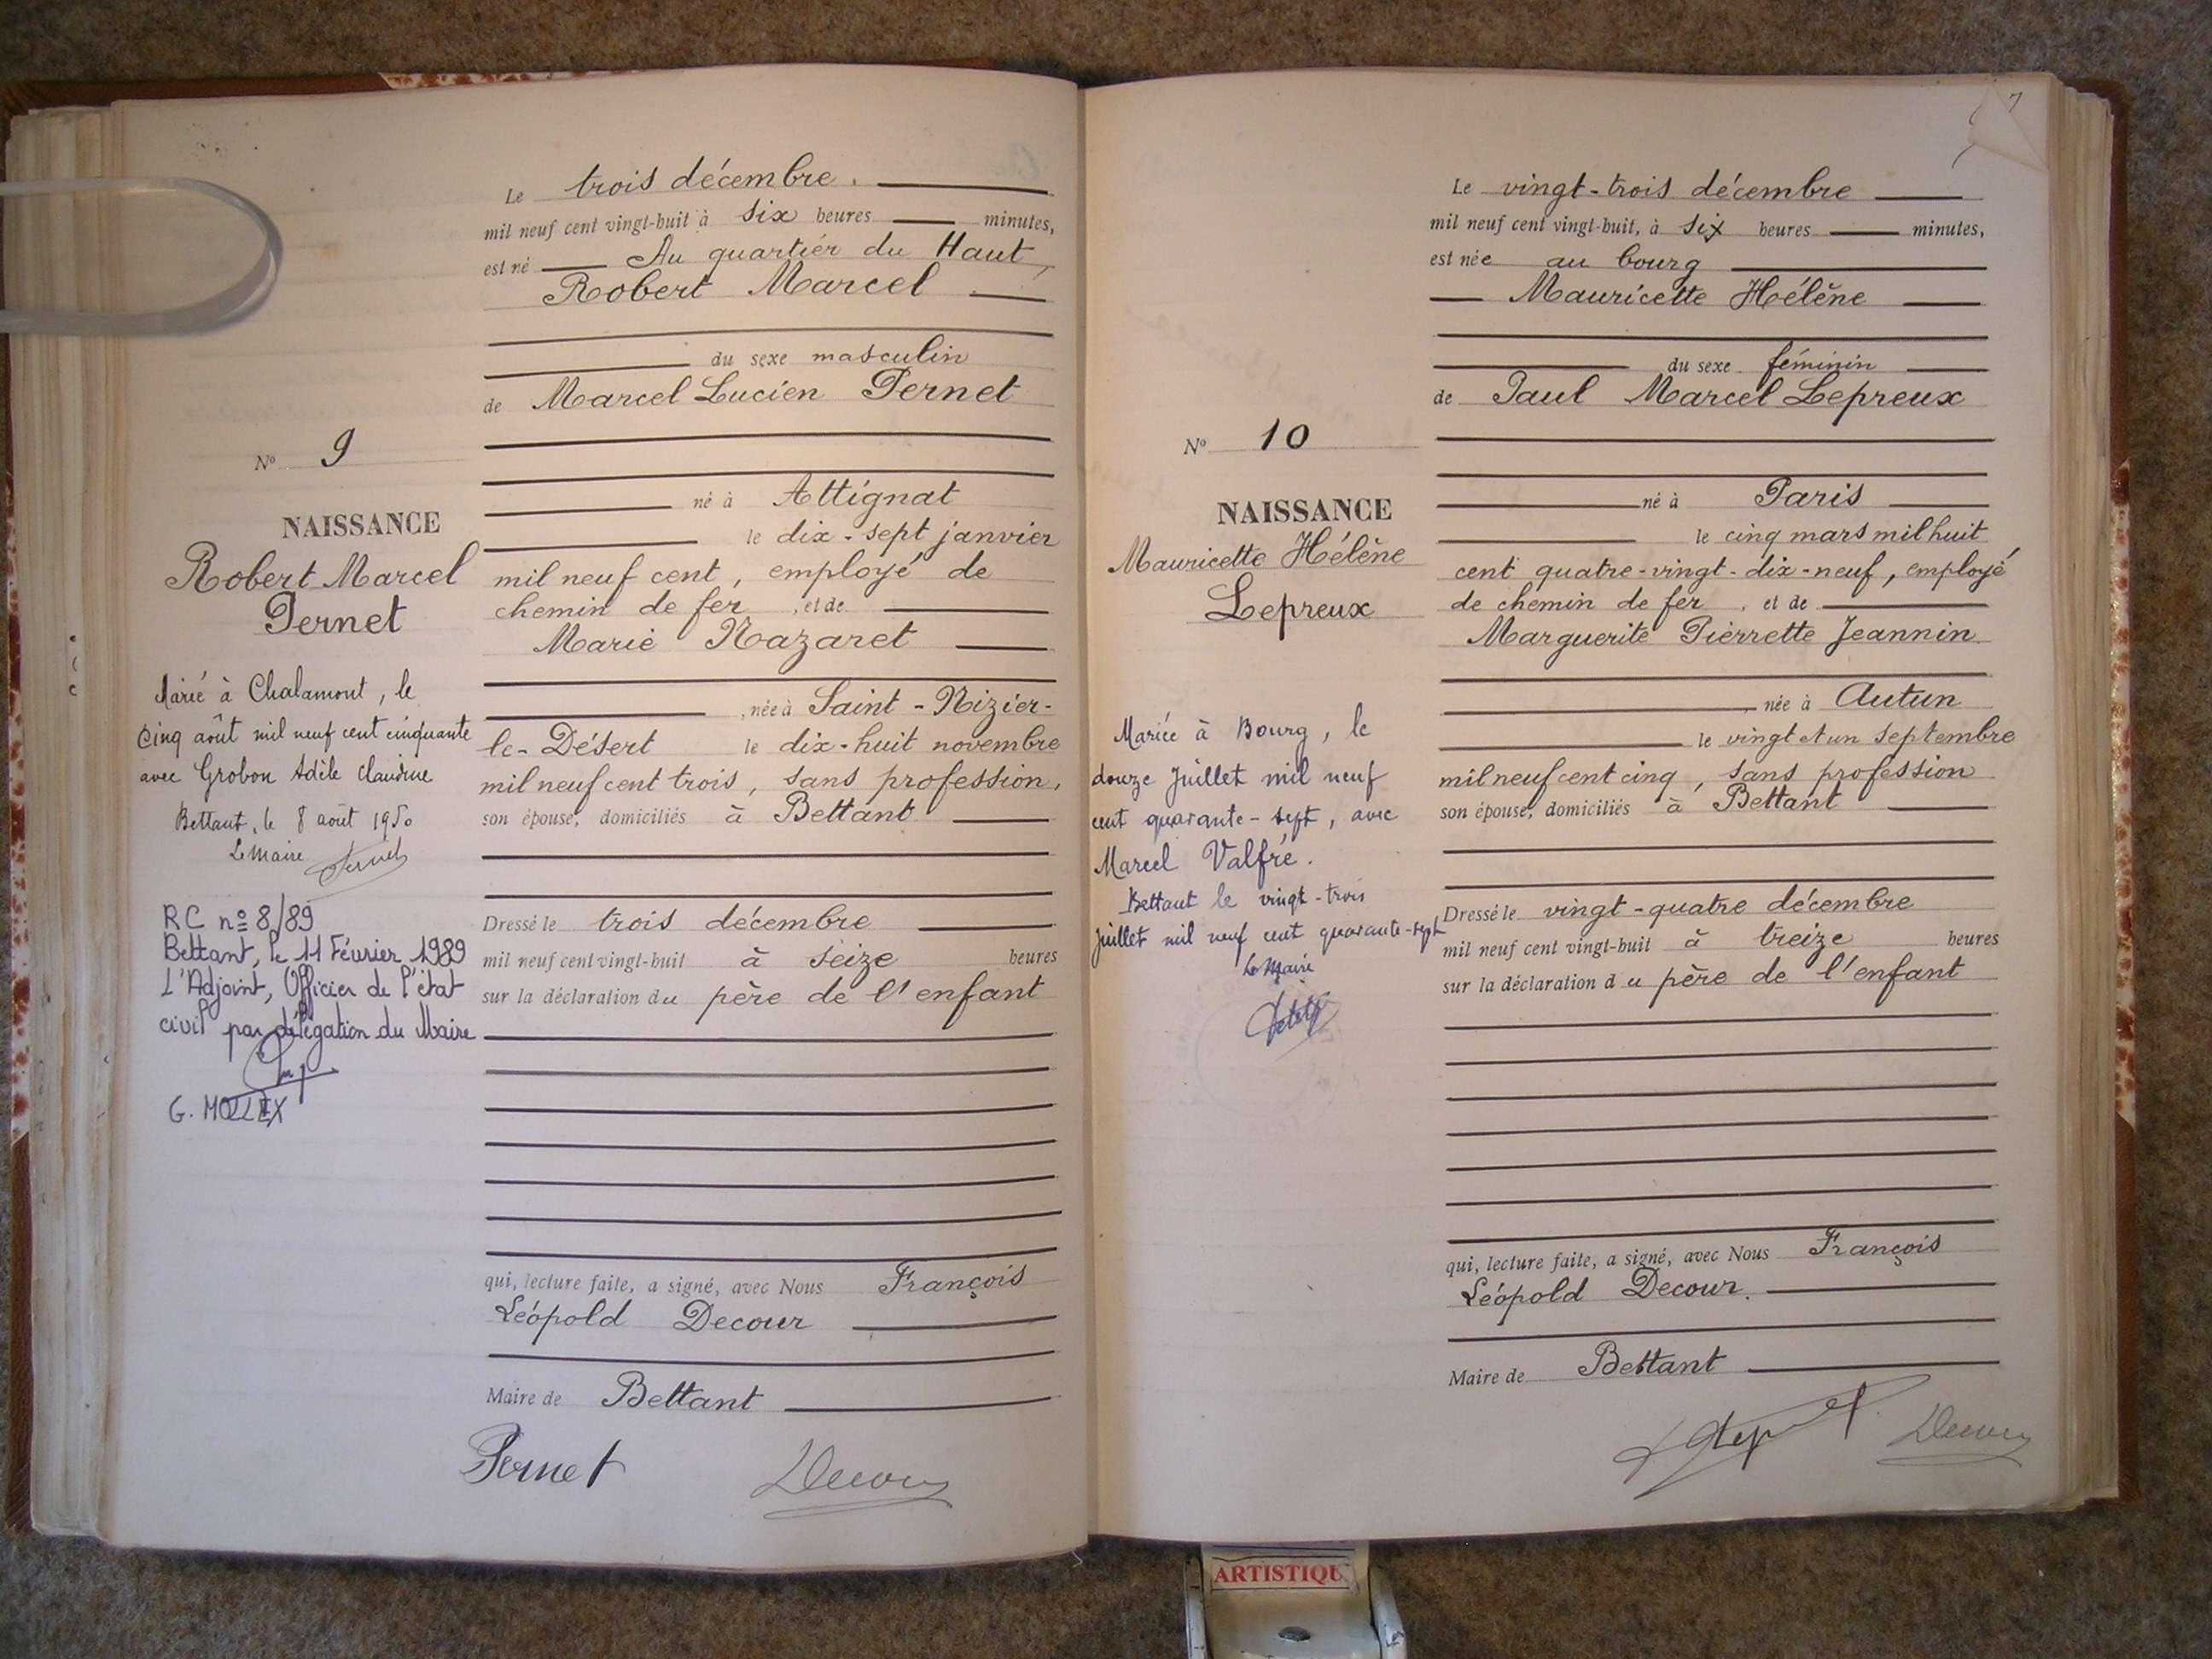 Le trois décembre.
mil neuf cent vingt-huit à six heures minutes,
est né Au quartier du Haut,
Robert Marcel
du sexe masculin
de Marcel Lucien Pernet
né à Attignat
le dix-sept janvier
mil neuf cent, employé de
chemin de fer, et de
Marie Nazaret
, née à Saint-Nizier-
le-Désert le dix-huit novembre
mil neuf cent trois, sans profession,
son épouse, domiciliés à Bettant
Dressé le trois décembre
mil neuf cent vingt-huit à seize heures
sur la déclaration du père de l'enfant
qui, lecture faite, a signé, avec Nous François
Léopold Decour
Maire de Bettant
Pernet Decour
No 9
NAISSANCE
Robert Marcel
Pernet
Marié à Chalamont, le
cinq août mil neuf cent cinquante
avec Grobon Adèle Claudine
Bettant, le 8 août 1950
Le Maire
RC no 8/89
Bettant, le 11 Février 1989
L'Adjoint, Officier de l'état
civil par délégation du Maire
G. MOLLEX
7
Le vingt-trois décembre
mil neuf cent vingt-huit, à six heures minutes,
est née au bourg
Mauricette Hélène
du sexe féminin
de Paul Marcel Lepreux
né à Paris
le cinq mars mil huit
cent quatre-vingt-dix-neuf, employé
de chemin de fer, et de
Marguerite Pierrette Jeannin
, née à Autun
le vingt et un septembre
mil neuf cent cinq, sans profession
son épouse, domiciliés à Bettant
Dressé le vingt-quatre décembre
mil neuf cent vingt-huit à treize heures
sur la déclaration du père de l'enfant
qui, lecture faite, a signé, avec Nous François
Léopold Decour.
Maire de Bettant
Decour
No 10
NAISSANCE
Mauricette Hélène
Lepreux
Mariée à Bourg, le
douze Juillet mil neuf
cent quarante-sept, avec
Marcel Valfré.
Bettant le vingt-trois
juillet mil neuf cent quarante-sept
Le Maire
ARTISTIQU